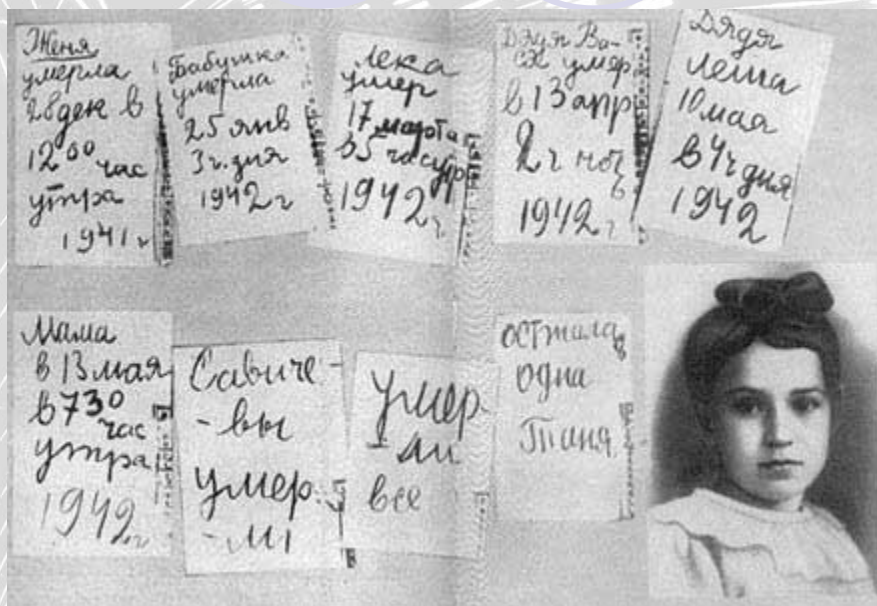 Женя
умерла
28 дек в
12 00 час
утра
1941 г
Бабушка
умерла
25 янв
3 ч. дня
1942 г
Лека
умер
17 марта
в 5 час утр
1942 г.
Дядя Ва-
ся умер
в 13 апр
2 ч ноч
ь
1942 г
Дядя
Леша
10 мая
в 4 ч дня
1942
Мама
в 13 мая
в 730
час
утра
1942 г
Савиче-
-вы
умер-
-ли
умер-
-ли
все
осталась
одна
Таня